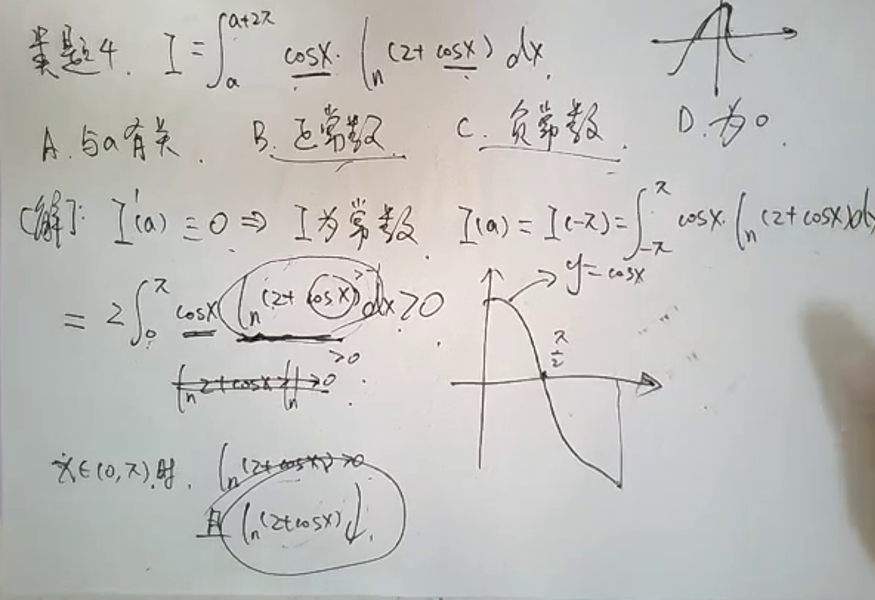 类题4. I=∫_a^{a+2π} cosx·ln(2+cosx)dx
A.与a有关. B.正常数 C.负常数. D.为0.
[解]: I'(a)≡0⇒I为常数. I(a)=I(-π)=∫_{-π}^{π} cosx·ln(2+cosx)dx
=2∫_0^π cosx ln(2+cosx)dx>0.
>0
y=cosx
π/2
x∈(0,π)时. ln(2+cosx)>0
且ln(2+cosx)↓.